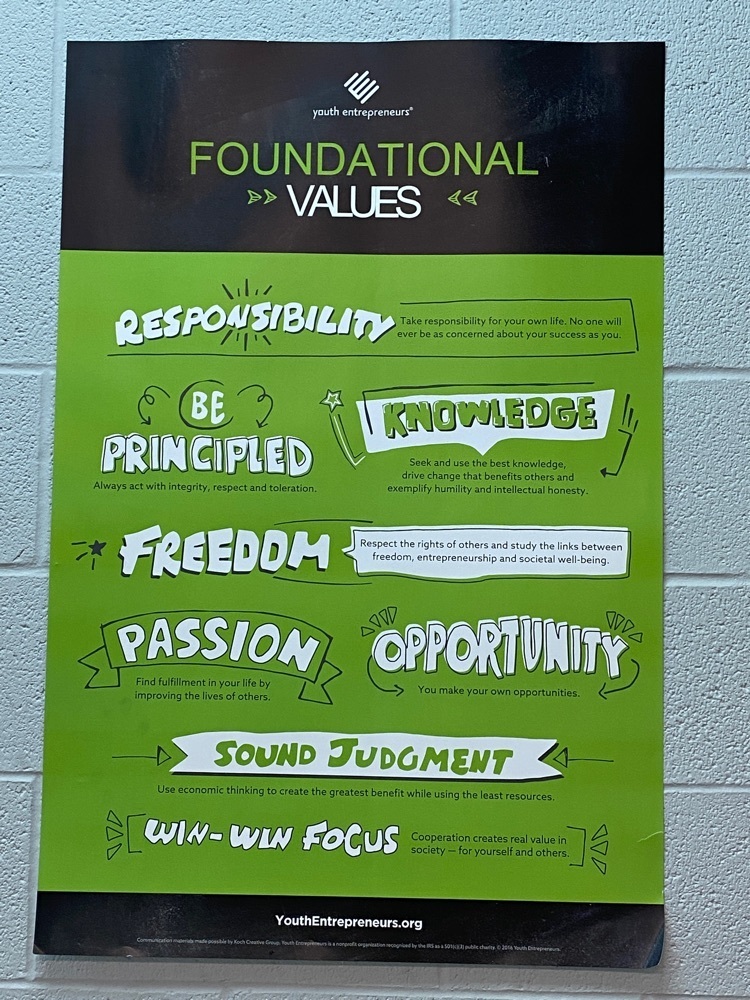 youth entrepreneurs®
FOUNDATIONAL
VALUES
RESPONSIBILITY
Take responsibility for your own life. No one will
ever be as concerned about your success as you.
BE
PRINCIPLED
Always act with integrity, respect and toleration.
KNOWLEDGE
Seek and use the best knowledge,
drive change that benefits others and
exemplify humility and intellectual honesty.
FREEDOM
Respect the rights of others and study the links between
freedom, entrepreneurship and societal well-being.
PASSION
Find fulfillment in your life by
improving the lives of others.
OPPORTUNITY
You make your own opportunities.
SOUND JUDGMENT
Use economic thinking to create the greatest benefit while using the least resources.
WIN-WIN FOCUS
Cooperation creates real value in
society — for yourself and others.
YouthEntrepreneurs.org
Communication materials made possible by Koch Creative Group. Youth Entrepreneurs is a nonprofit organization recognized by the IRS as a 501(c)(3) public charity. © 2016 Youth Entrepreneurs.